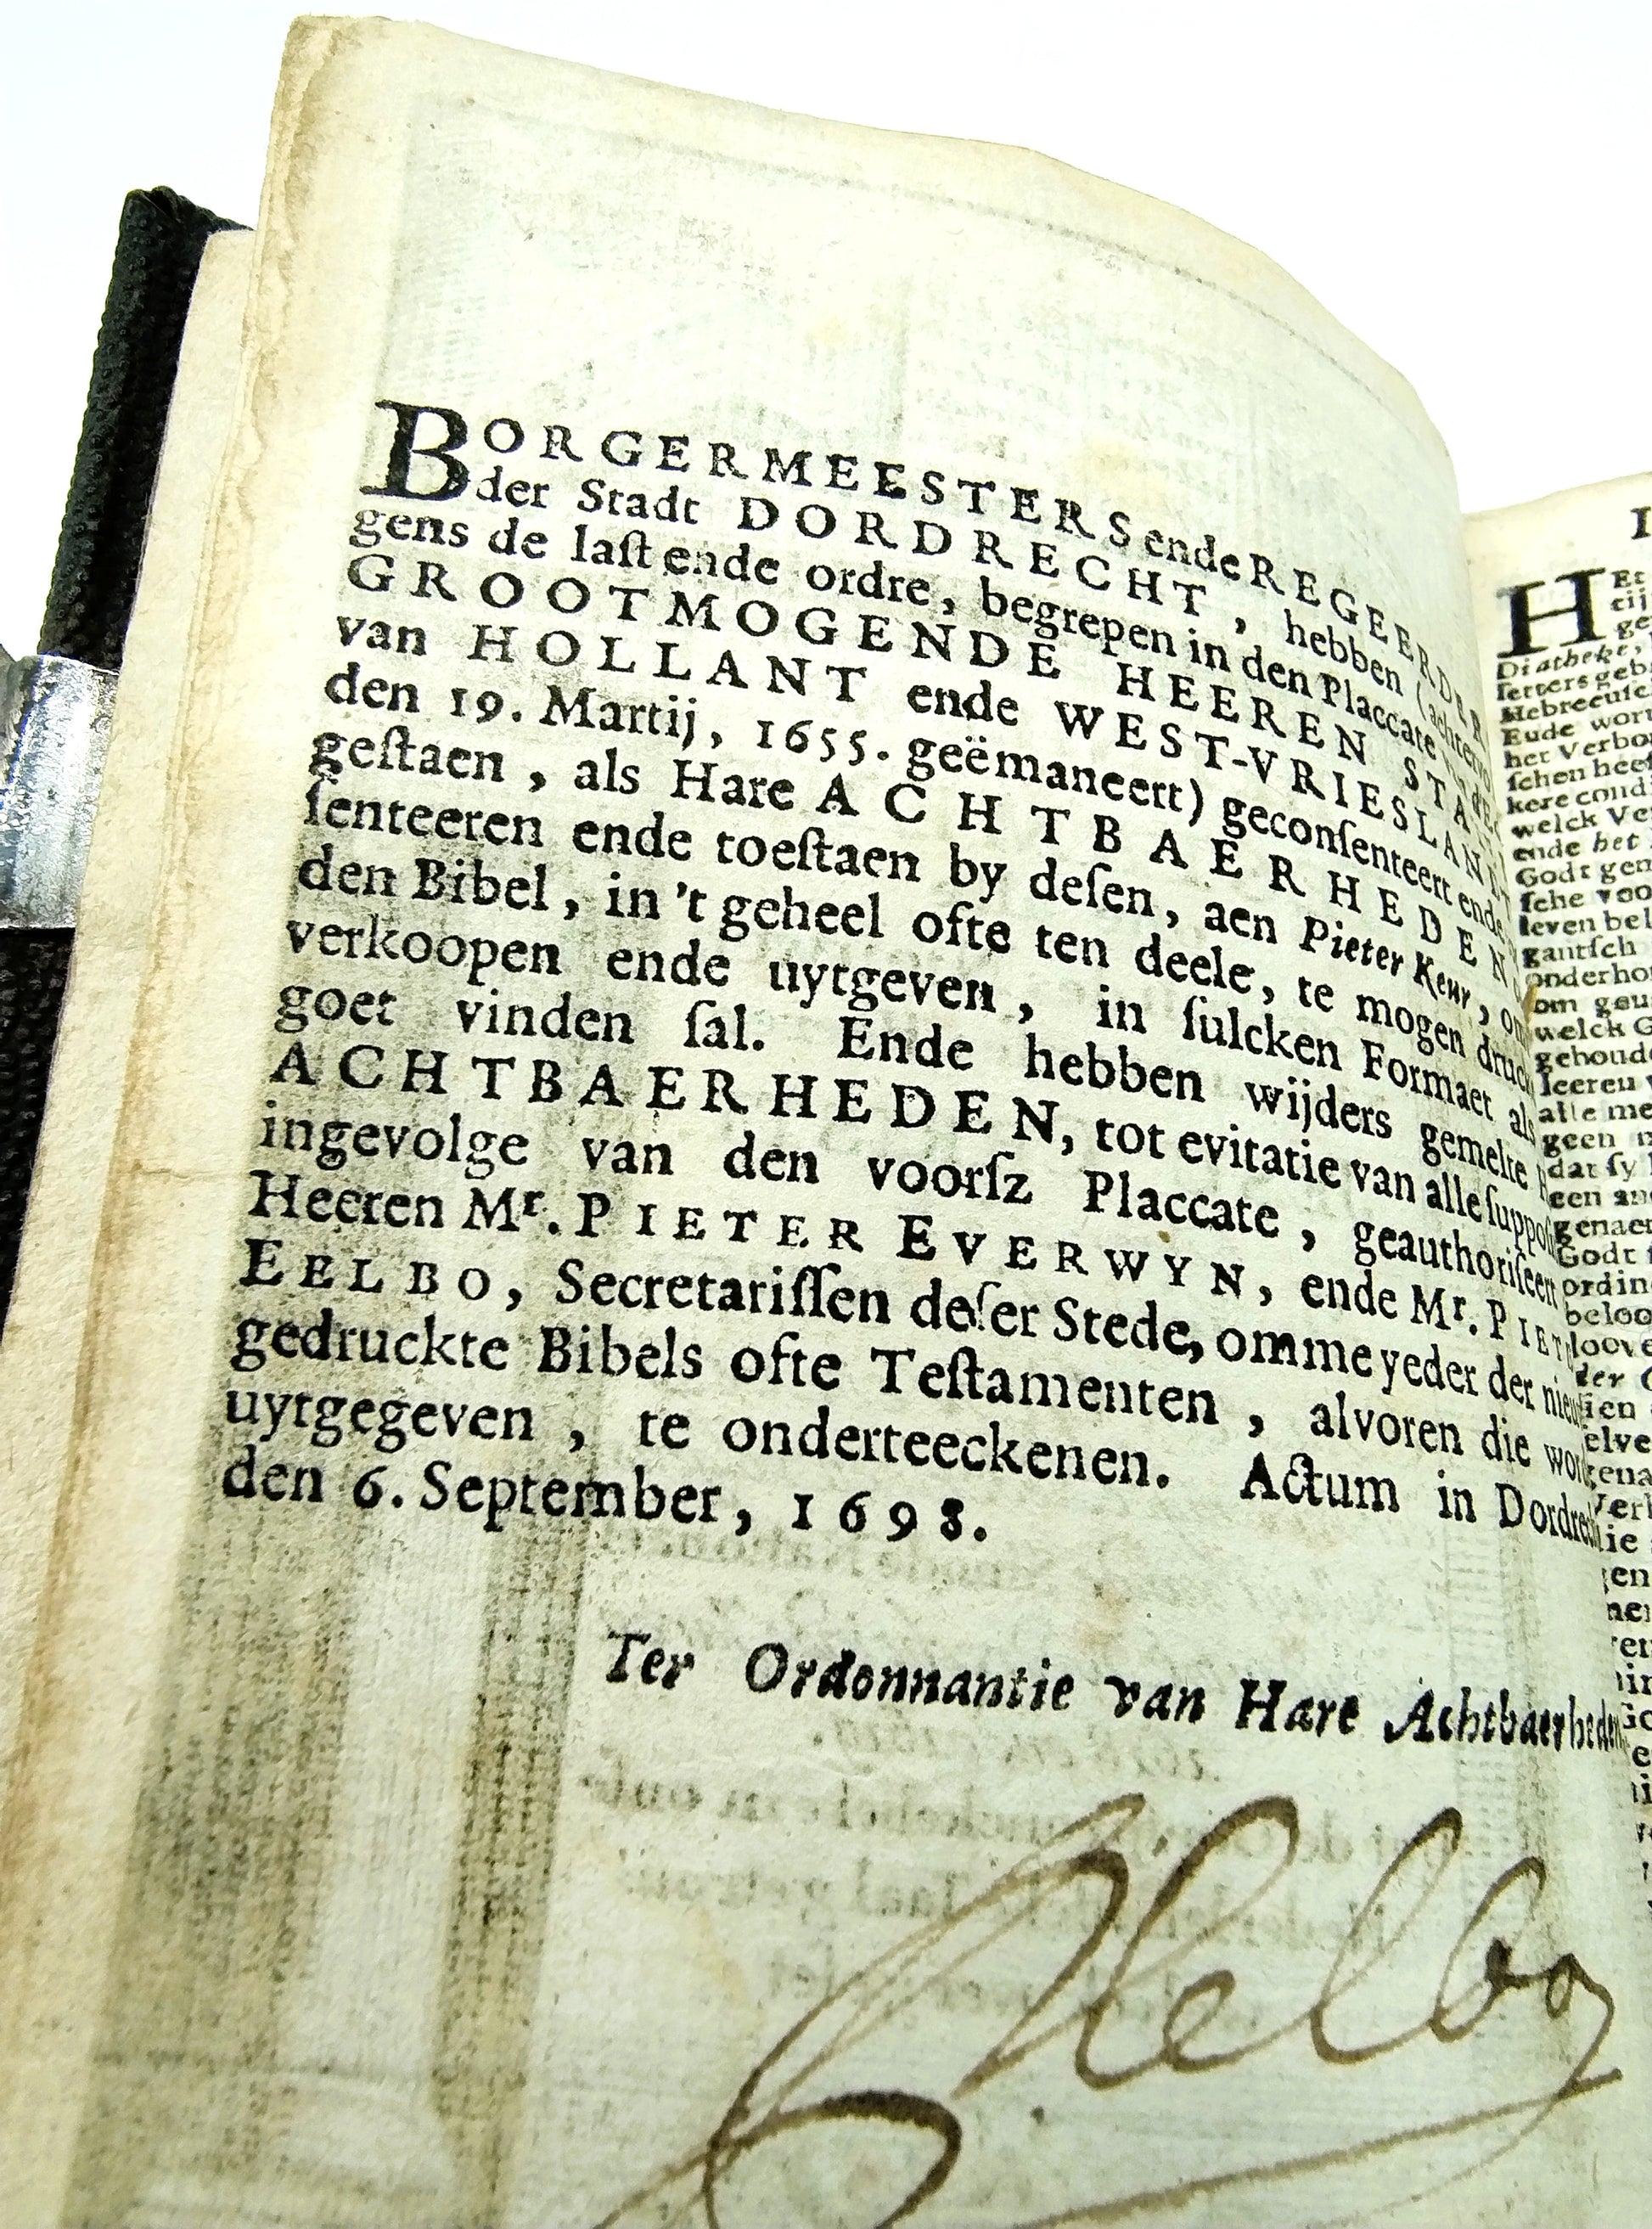 BORGERMEESTERS ende REGEERDER
der Stadt DORDRECHT, hebben (achtervo
gens de laſt ende ordre, begrepen in den Placcate
GROOTMOGENDE HEEREN STA
van HOLLANT ende WEST-VRIESLAN
den 19. Martij, 1655. geëmaneert) geconſenteert ende
geſtaen, als Hare ACHTBAERHEDEN
ſenteeren ende toeſtaen by deſen, aen Pieter Keur, om
den Bibel, in 't geheel ofte ten deele, te mogen druck
verkoopen ende uytgeven, in ſulcken Formaet als
goet vinden ſal. Ende hebben wijders gemelte
ACHTBAERHEDEN, tot evitatie van alle ſuppo
ingevolge van den voorſz Placcate, geauthoriſeert
Heeren Mr. PIETER EVERWYN, ende Mr. PIET
EELBO, Secretariſſen deſer Stede, omme yeder der nieu
gedruckte Bibels ofte Teſtamenten, alvoren die wor
uytgegeven, te onderteeckenen. Actum in Dordre
den 6. September, 1698.
Ter Ordonnantie van Hare Achtbaerheden
Eelbo
HEt
tij
ge
Diatheke,
ſetters geb
Hebreeuſe
Eude wor
het Verbo
ſchen heef
kere cond
welck Ve
ende het
Godt gen
ſche voo
leven bel
gantſch
onderho
om gou
welck G
gehoude
leeren
alle me
geen n
dat ſy
een an
genaem
Godt
ordin
beloo
loove
der